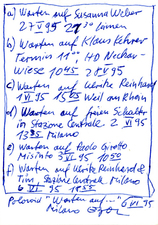 a) Warten auf Susanna Weber
27 V 95 21:30 Lünen
b) Warten auf Klaus Kehrer
Termin 11:, HD Neckar-
Wiese 10 45 28 V 95
c) Warten auf Ulrike Reinhard
1 VI 95 15 05 Weil am Rhein
d) Warten auf freien Schalter
in Stazione Centrale 2. VI 95
13 35 Milano
e) Warten auf Paolo Girotto
Misinto 3 VI 95 10 50
f) Warten auf Ulrike Reinhard &
Tim, Stazione Centrale Milano
6 VI 95 11 55
Poloroid "Warten auf..."
Milano 6 VI 95